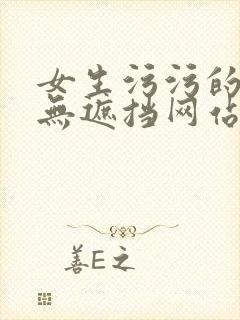 女生污污的
無遮挡网站
善E之